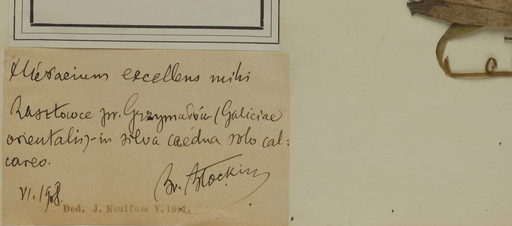 Hieracium excellens mihi
Rasztowce pr. Grzymałów (Galiciae
orientalis)-in silva caedua solo cal=
careo.
Br. Błocki
VI. 1908.
Ded. J. Kauffuss V.